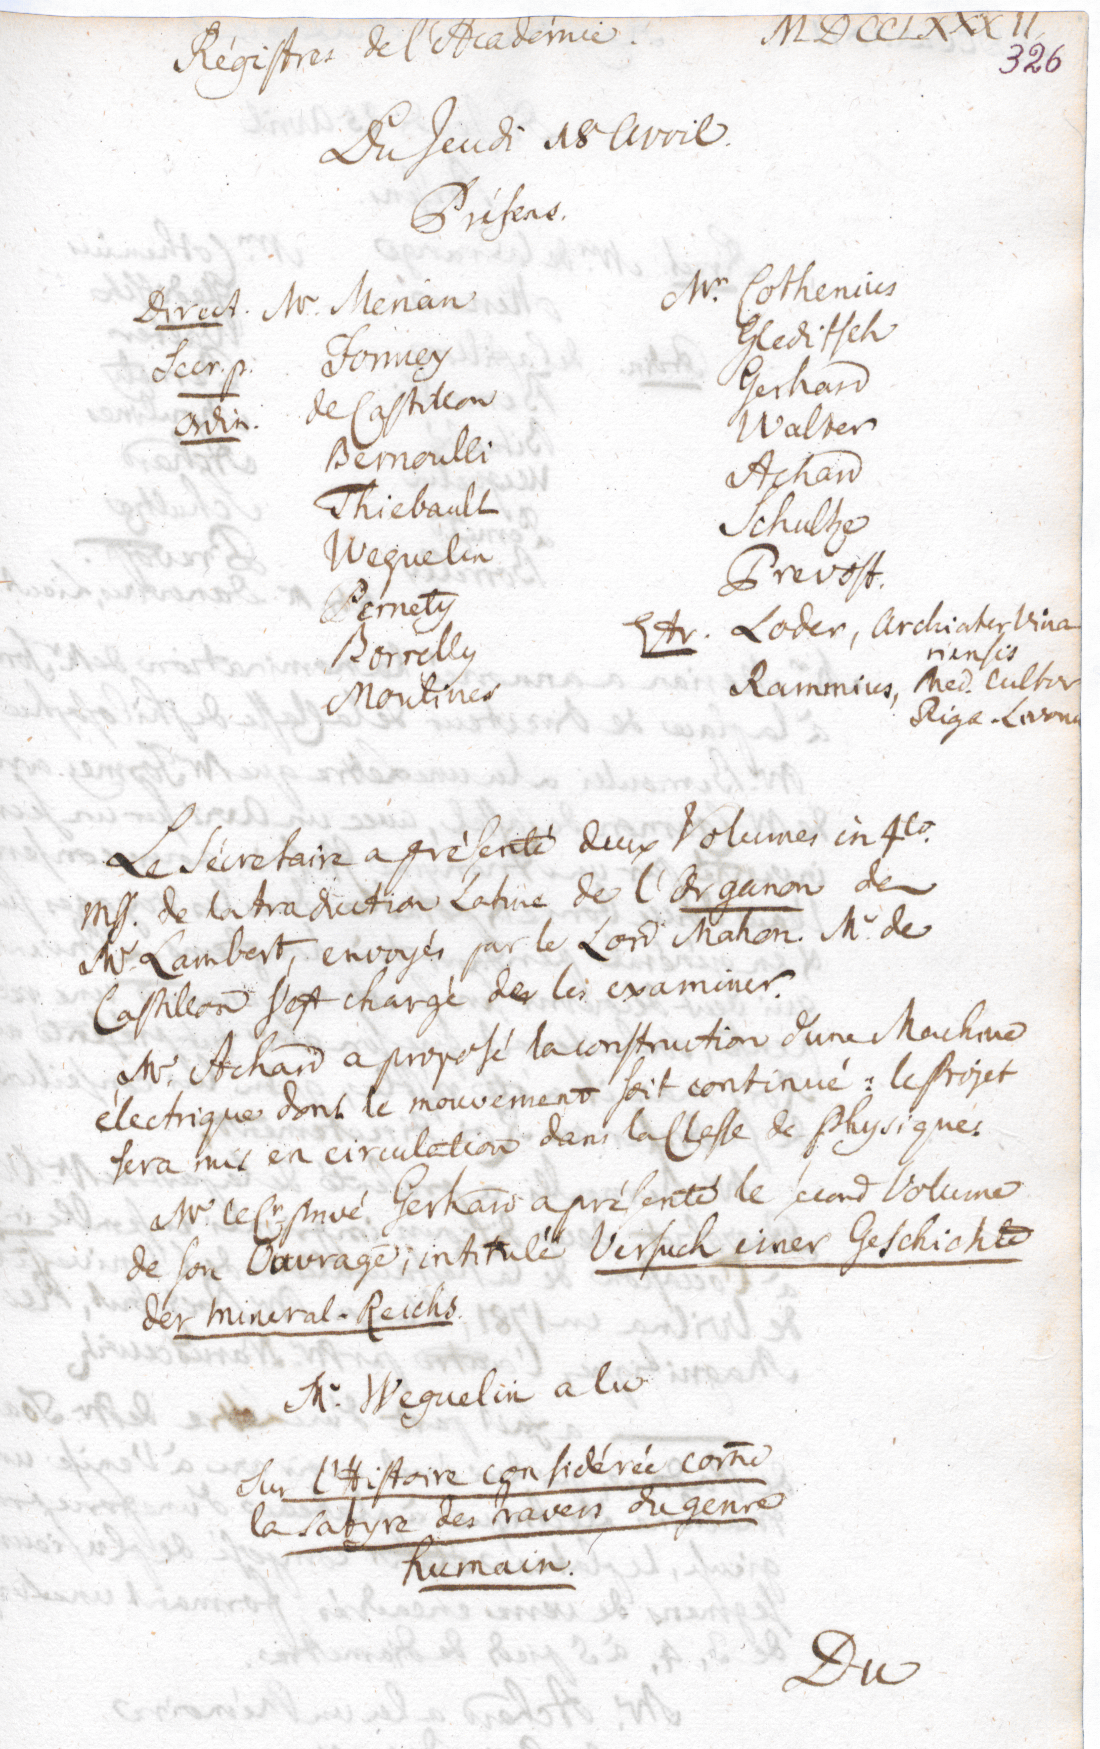 Régistres de l'Académie. MDCCLXXXII.
326
Du Jeudi 18 Avril.
Présens.
Direct. Mr. Merian
Secr. p. Formey
Ordin. de Castillon
Bernoulli
Thiebault
Weguelin
Pernety
Borrelly
Moulines
Mrs. Cothenius
Gleditsch
Gerhard
Walter
Achard
Schultze
Prevost.
Etr. Loder, Archiater Vina
riensis
Rammius, Med. Cultor
Riga-Livonus
Le Sécretaire a présenté deux Volumes in 4to.
mss. de la traduction Latine de l'Organon de
Mr. Lambert, envoyés par le Lord Mahon. Mr. de
Castillon s'est chargé de les examiner.
Mr. Achard a proposé la construction d'une Machine
électrique dont le mouvement soit continué : le Projet
sera mis en circulation dans la Classe de Physique.
Mr. le Cr. privé Gerhard a présenté le second Volume
de son Ouvrage, intitulé Versuch einer Geschichte
der mineral-Reichs.
Mr. Weguelin a lu
Sur l'Histoire considérée come
la satyre des travers du genre
humain.
Du